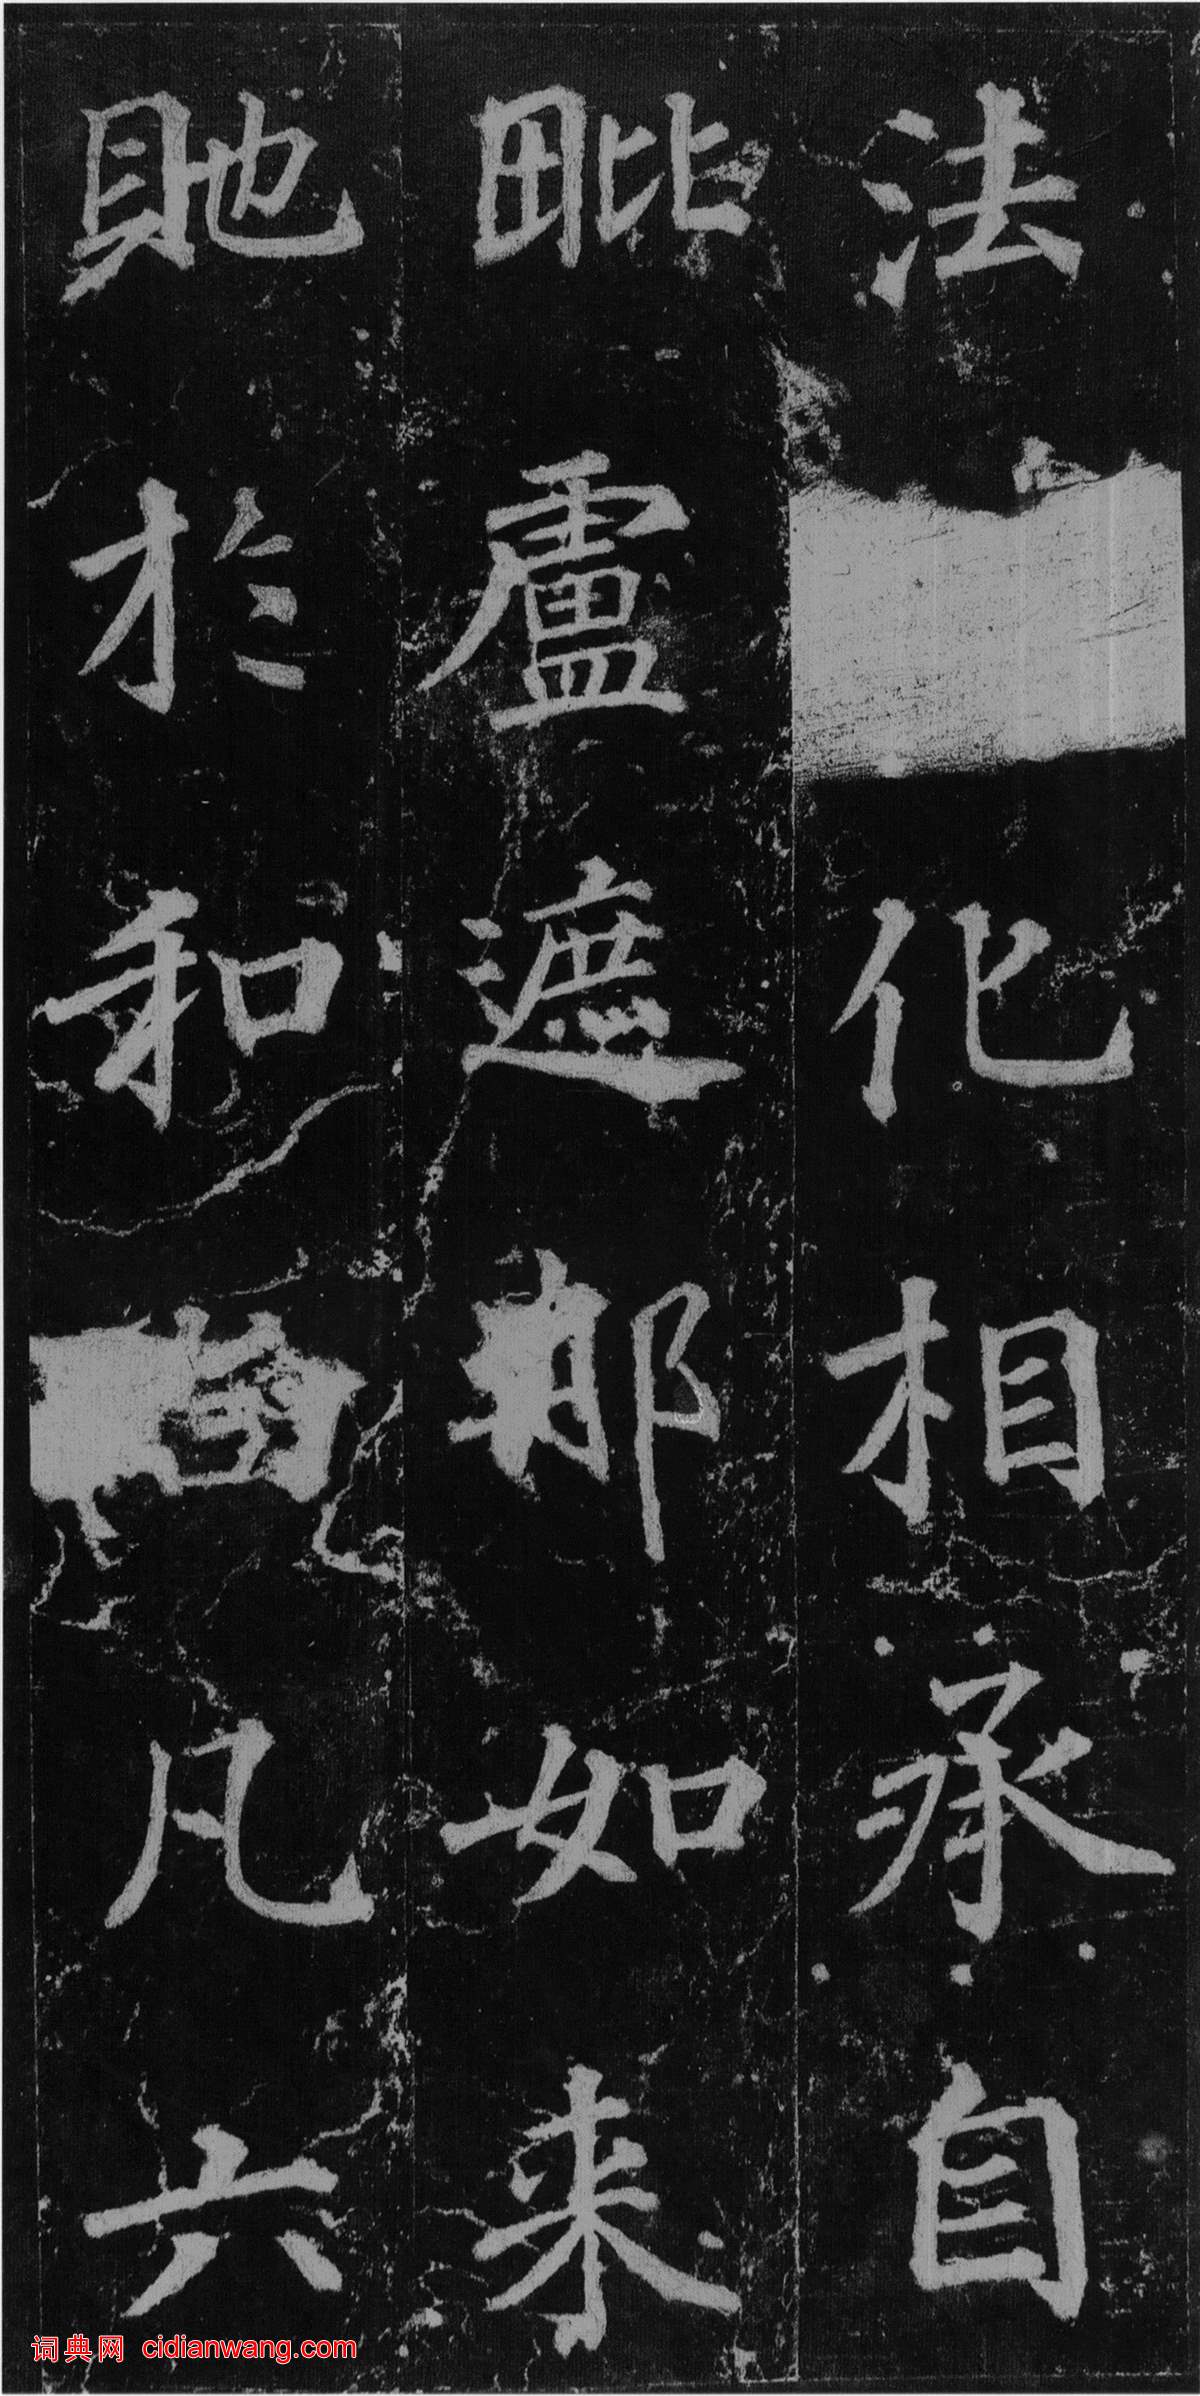 法化相承自
毗盧遮那如来
貤於和尚凡六
词典网 cidianwang.com